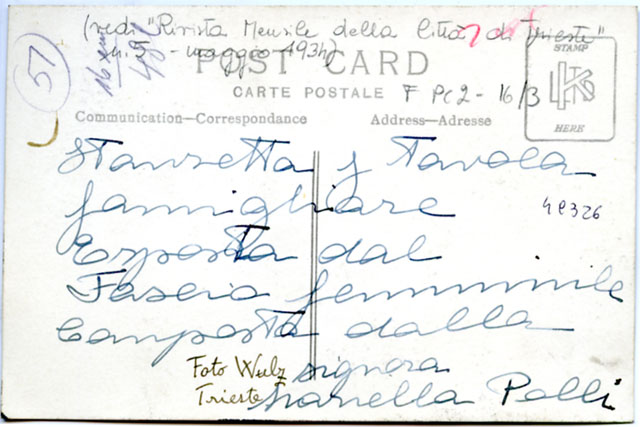 (vedi "Rivista Mensile della Città di Trieste"
n. 5 - maggio 1934)
57
POST CARD
CARTE POSTALE
F PC2 - 16/3
STAMP
HERE
Communication—Correspondance
Address—Adresse
Stanzetta y Tavola
famigliare
49326
Esposta dal
Fascio femminile
Composta dalla
signora
Foto Wulz
Trieste
Polli